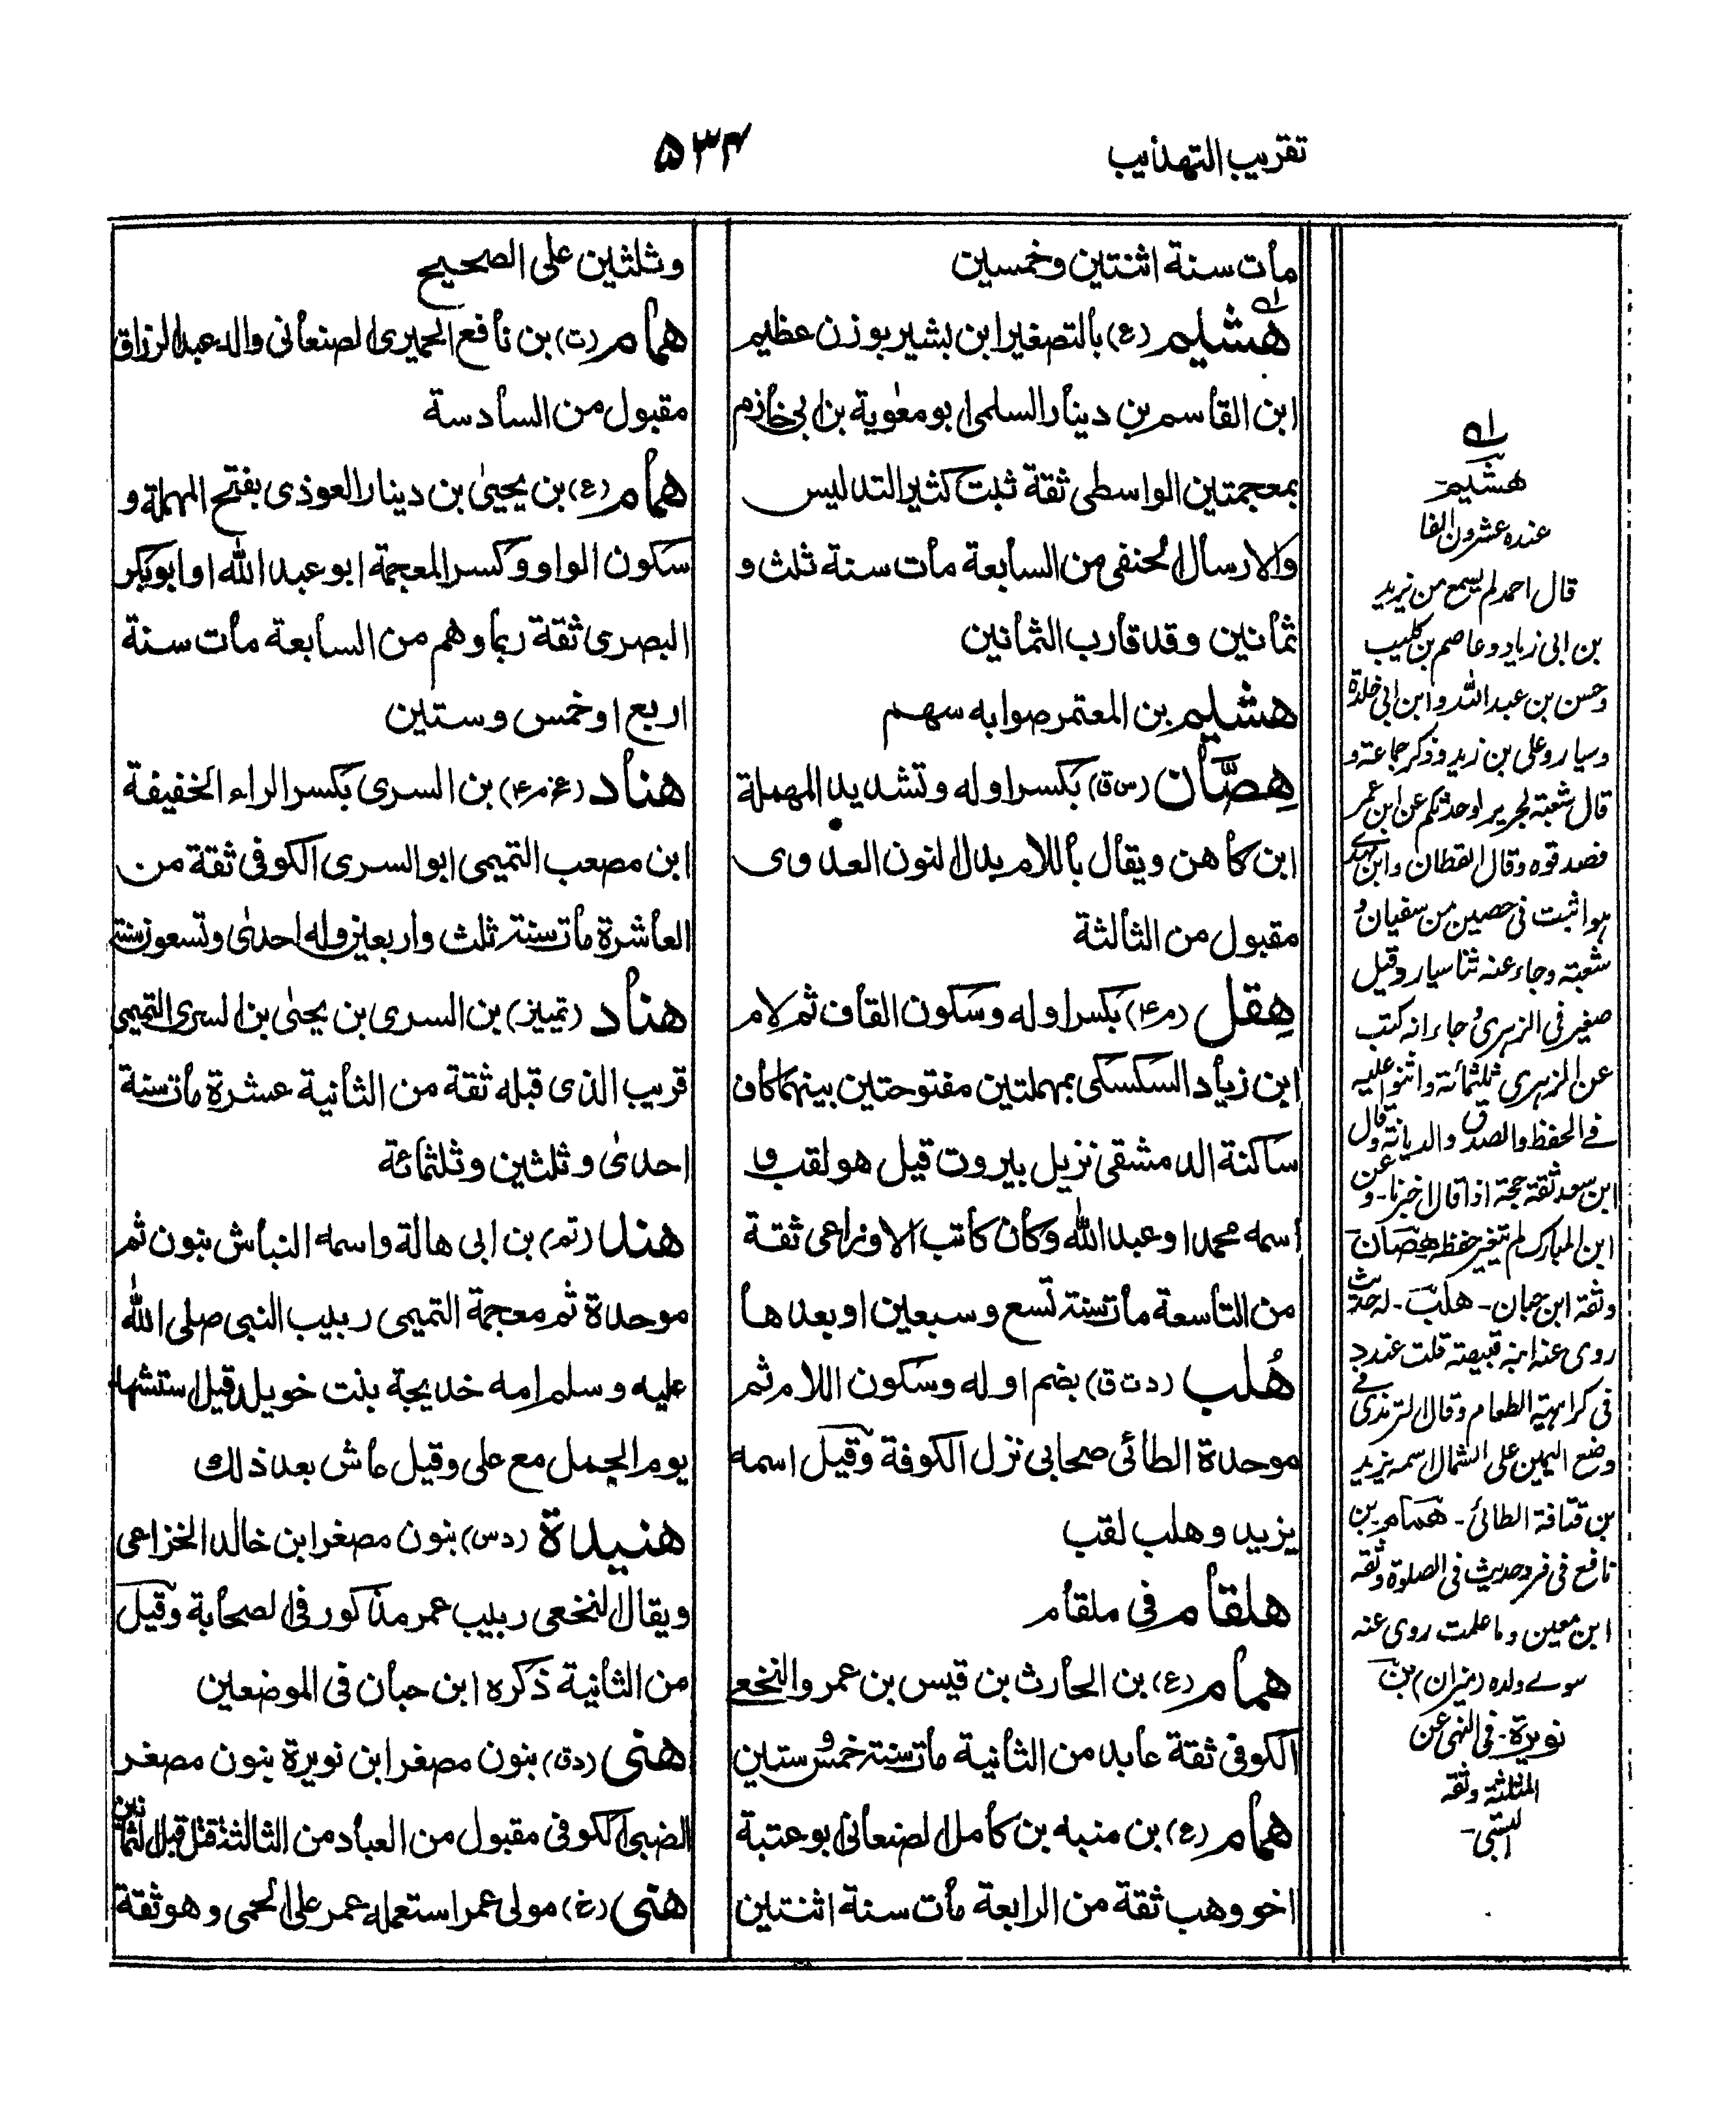 تقريب التهذيب
۵۳۴
مات سنة اثنتين وخمسين
هشيم (ع) بالتصغير ابن بشير بوزن عظيم
ابن القاسم بن دينار السلمي ابو معٰوية بن ابي خازم
بمعجمتين الواسطي ثقة ثبت كثير التدليس
والارسال الخفي من السابعة مات سنة ثلث و
ثمانين وقد قارب الثمانين
هشيم بن المعتمر صوابه سهم
هِصَّان (س ق) بكسر اوله وتشديد المهملة
ابن كاهن ويقال باللام بدل النون العدوي
مقبول من الثالثة
هِقل (م ۴) بكسر اوله وسكون القاف ثم لام
ابن زياد السكسكي بمهملتين مفتوحتين بينهما كاف
ساكنة الدمشقي نزيل بيروت قيل هو لقب و
اسمه محمد او عبد الله وكان كاتب الاوزاعي ثقة
من التاسعة مات سنة تسع وسبعين او بعدها
هُلب (د ت ق) بضم اوله وسكون اللام ثم
موحدة الطائي صحابي نزل الكوفة وقيل اسمه
يزيد وهلب لقب
هلقام في ملقام
همام (ع) بن الحارث بن قيس بن عمرو النخعي
الكوفي ثقة عابد من الثانية مات سنة خمس وستين
همام (ع) بن منبه بن كامل الصنعاني ابو عتبة
اخو وهب ثقة من الرابعة مات سنة اثنتين
وثلثين على الصحيح
همام (ت) بن نافع الحميري الصنعاني والد عبد الرزاق
مقبول من السادسة
همام (ع) بن يحيىٰ بن دينار العوذي بفتح المهملة و
سكون الواو وكسر المعجمة ابو عبد الله او ابو بكر
البصري ثقة ربما وهم من السابعة مات سنة
اربع او خمس وستين
هناد (عخ م ۴) بن السري بكسر الراء الخفيفة
ابن مصعب التميمي ابو السري الكوفي ثقة من
العاشرة مات سنة ثلث واربعين وله احدىٰ وتسعون سنة
هناد (تمييز) بن السري بن يحيىٰ بن السري التميمي
قريب الذي قبله ثقة من الثانية عشرة مات سنة
احدىٰ وثلثين وثلثمائة
هند (تم) بن ابي هالة واسمه النباش بنون ثم
موحدة ثم معجمة التميمي ربيب النبي صلى الله
عليه وسلم امه خديجة بنت خويلد قيل استشهد
يوم الجمل مع علي وقيل عاش بعد ذلك
هنيدة (د س) بنون مصغر ابن خالد الخزاعي
ويقال النخعي ربيب عمر مذكور في الصحابة وقيل
من الثانية ذكره ابن حبان في الموضعين
هني (د ق) بنون مصغر ابن نويرة بنون مصغر
الضبي الكوفي مقبول من العباد من الثالثة قتل قبل الثمانين
هني (خ) مولى عمر استعمله عمر على الحمى وهو ثقة
هشيم
عنده عشرون الفا
قال احمد لم يسمع من يزيد
بن ابي زياد وعاصم بن كليب
وحسن بن عبد الله وابن ابي خلدة
وسيار وعلى بن زيد وذكر جماعة و
قال شعبة لجرير لو حدثكم عن ابن عمر
فصدقوه وقال القطان وابن مهدي
هو اثبت في حصين من سفيان و
شعبة وجاء عنه ثنا سيار وقيل
صغير في الزهري جاء انه كتب
عن الزهري ثلثمائة واثنوا عليه
في الحفظ والصدق والديانة وقال
ابن سعد ثقة حجة اذا قال اخبرنا - وعن
ابن المبارك لم تتغير حفظه هصان
وثقه ابن حبان - هلب - له حديث
روى عنه ابنه قبيصة قلت عند د
في كراهية الطعام وقال الترمذي في
وضع اليمين على الشمال اسمه يزيد
بن قنافة الطائي - همام بن
نافع في فرد حديث في الصلوة وثقه
ابن معين وما علمت روى عنه
سوى ولده (ميزان) بن
نويرة - في النهي عن
المثلثة وثقه